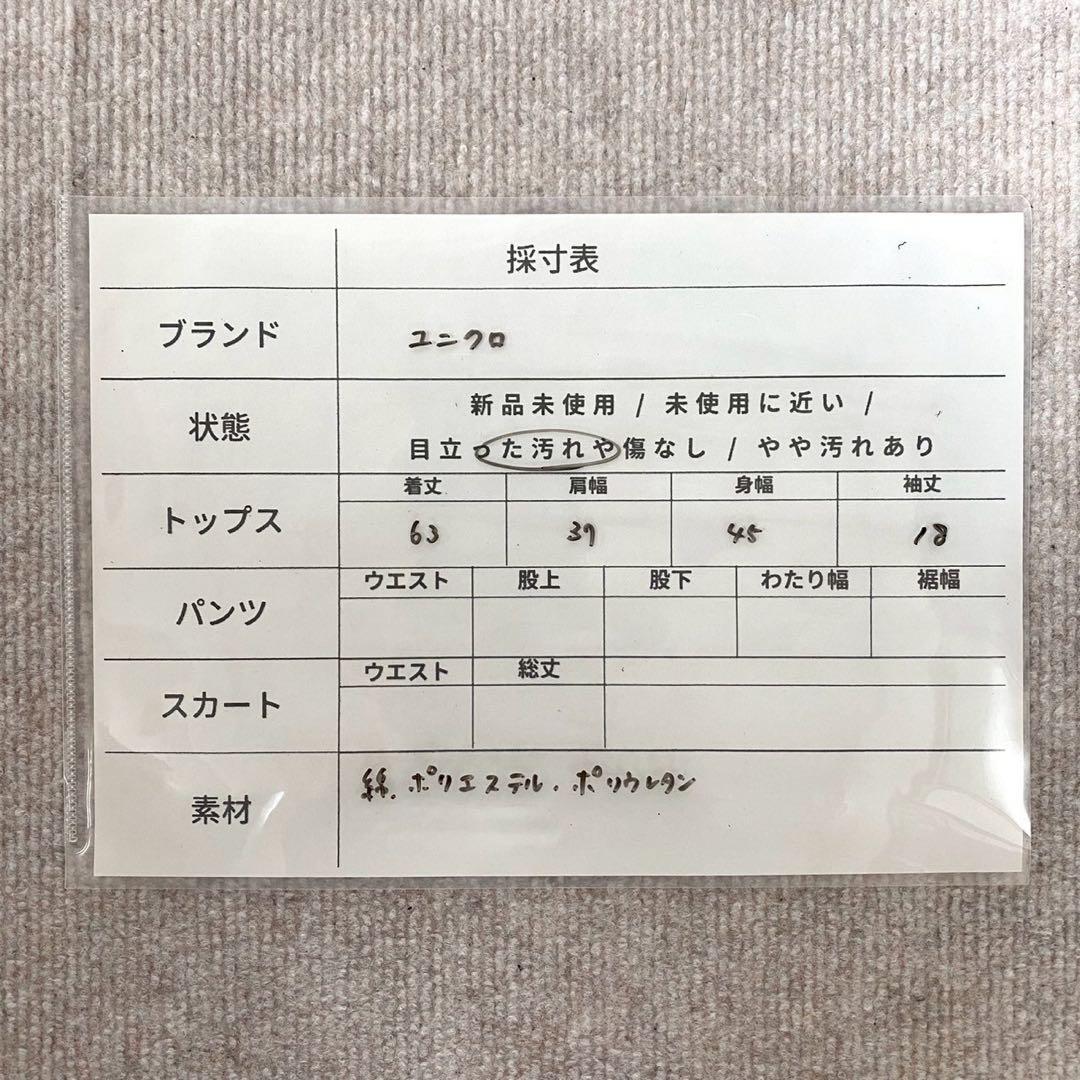 採寸表
ブランド ユニクロ
状態 新品未使用 / 未使用に近い /
目立った汚れや傷なし / やや汚れあり
トップス 着丈 肩幅 身幅 袖丈
63 39 45 18
パンツ ウエスト 股上 股下 わたり幅 裾幅
スカート ウエスト 総丈
素材 綿.ポリエステル.ポリウレタン